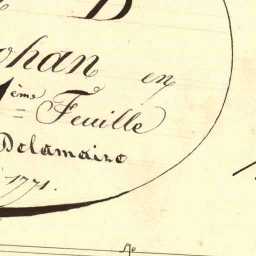 B
ohan en
1ème Feuille
Delamaire
1771.